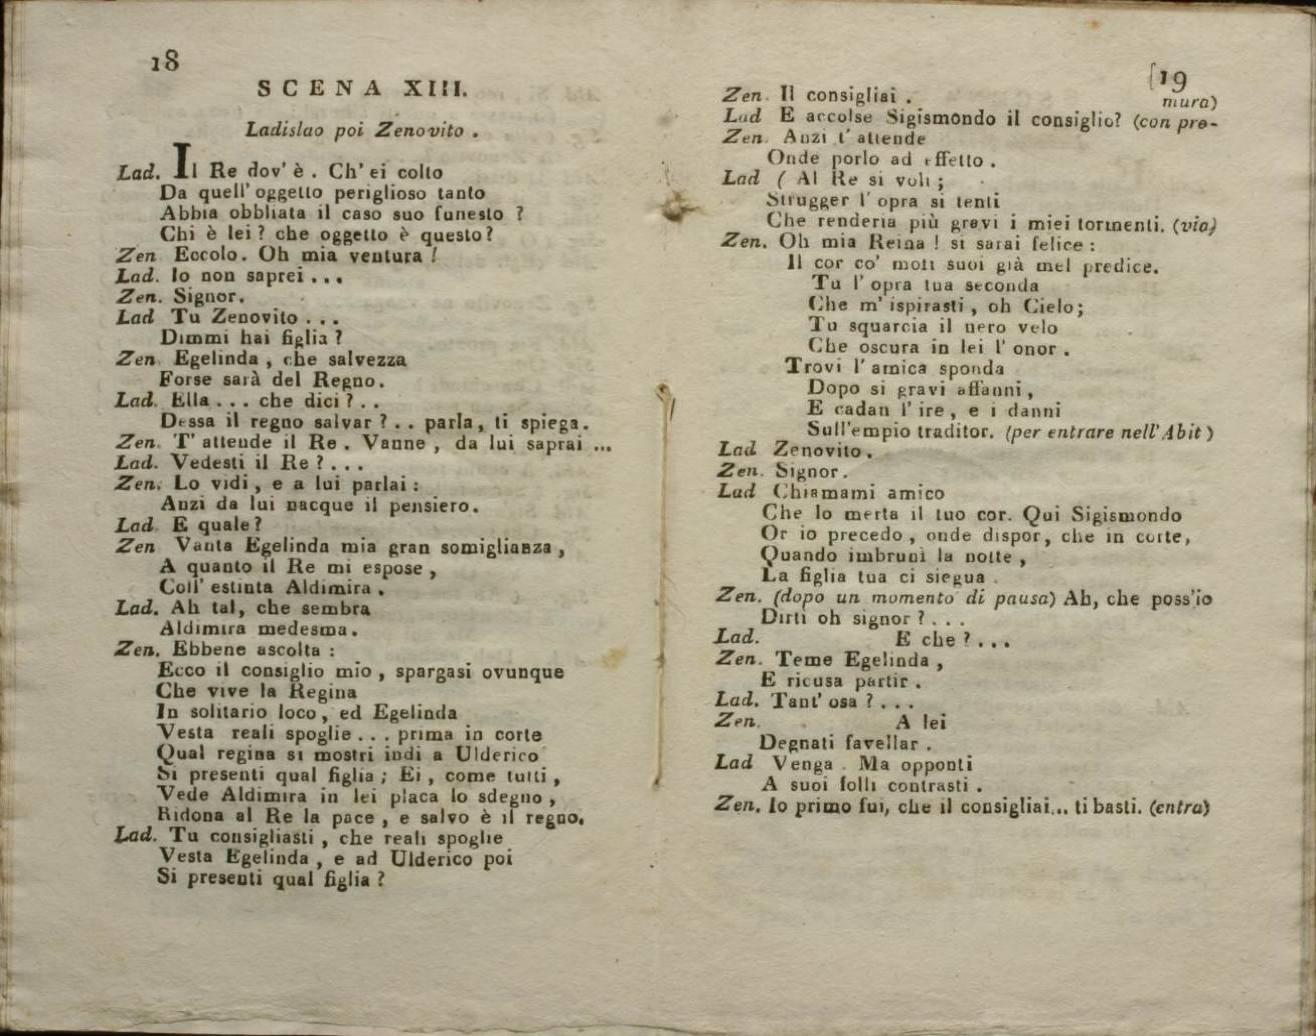 18
SCENA XIII.
Ladislao poi Zenovito .
Lad. Il Re dov' è . Ch' ei colto
Da quell' oggetto periglioso tanto
Abbia obbliata il caso suo funesto ?
Chi è lei ? che oggetto è questo ?
Zen Eccolo. Oh mia ventura !
Lad. Io non saprei ...
Zen. Signor.
Lad Tu Zenovito ...
Dimmi hai figlia ?
Zen. Egelinda , che salvezza
Forse sarà del Regno.
Lad. Ella ... che dici ? ..
Dessa il regno salvar ? .. parla, ti spiega.
Zen. T' attende il Re . Vanne , da lui saprai ...
Lad. Vedesti il Re ? ...
Zen. Lo vidi , e a lui parlai :
Anzi da lui nacque il pensiero.
Lad. E quale ?
Zen Vanta Egelinda mia gran somiglianza ,
A quanto il Re mi espose ,
Coll' estinta Aldimira .
Lad. Ah tal, che sembra
Aldimira medesma .
Zen. Ebbene ascolta :
Ecco il consiglio mio , spargasi ovunque
Che vive la Regina
In solitario loco , ed Egelinda
Vesta reali spoglie ... prima in corte
Qual regina si mostri indi a Ulderico
Si presenti qual figlia ; Ei , come tutti ,
Vede Aldimira in lei placa lo sdegno ,
Ridona al Re la pace , e salvo è il regno.
Lad. Tu consigliasti , che reali spoglie
Vesta Egelinda , e ad Ulderico poi
Si presenti qual figlia ?
19
Zen. Il consigliai .
mura)
Lad E accolse Sigismondo il consiglio? (con pre-
Zen. Anzi t' attende
Onde porlo ad effetto .
Lad ( Al Re si voli ;
Strugger l' opra si tenti
Che renderia più gravi i miei tormenti. (via)
Zen. Oh mia Reina ! si sarai felice :
Il cor co' moti suoi già mel predice.
Tu l' opra tua seconda
Che m' ispirasti , oh Cielo;
Tu squarcia il nero velo
Che oscura in lei l' onor .
Trovi l' amica sponda
Dopo si gravi affanni ,
E cadan l' ire , e i danni
Sull'empio traditor. (per entrare nell'Abit )
Lad Zenovito .
Zen. Signor .
Lad Chiamami amico
Che lo merta il tuo cor. Qui Sigismondo
Or io precedo , onde dispor, che in corte,
Quando imbrunì la notte ,
La figlia tua ci siegua .
Zen. (dopo un momento di pausa) Ah, che poss'io
Dirti oh signor ? ...
Lad. E che ? ...
Zen. Teme Egelinda ,
E ricusa partir .
Lad. Tant' osa ? ...
Zen. A lei
Degnati favellar .
Lad Venga . Ma opponti
A suoi folli contrasti .
Zen. Io primo fui, che il consigliai... ti basti. (entra)